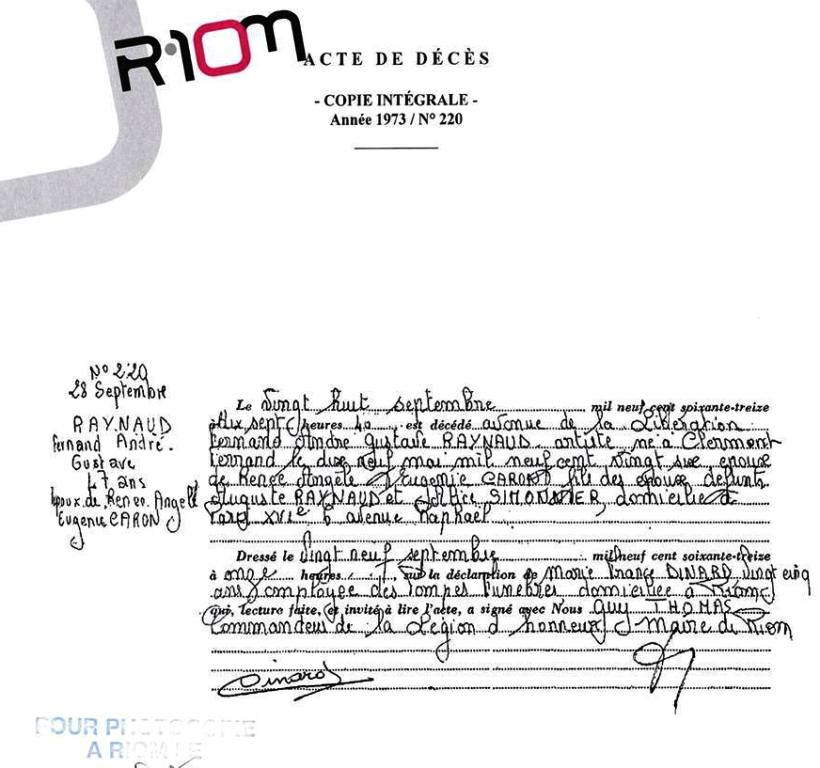 R·IOM
ACTE DE DÉCÈS
- COPIE INTÉGRALE -
Année 1973 / N° 220
N° 220
28 Septembre
RAYNAUD
Fernand André.
Gustave
47 ans
époux de Renée Angèle
Eugenie CARON
Le Vingt huit septembre mil neuf cent soixante-treize
à dix sept heures 40, est décédé avenue de la Libération
Fernand André Gustave RAYNAUD artiste né à Clermont
Ferrand le dix neuf mai mil neuf cent vingt six époux
de Renée Angèle Eugenie CARON fils des époux défunts
Auguste RAYNAUD et SIMONNIER, domicilié à
Paris XVIe 6 avenue Raphael
Dressé le Vingt neuf septembre mil neuf cent soixante-treize
à onze heures, sur la déclaration de Marie France DINARD vingt cinq
ans employée des Pompes Funèbres domiciliée à Riom
qui, lecture faite, et invité à lire l'acte, a signé avec Nous Guy THOMAS
Commandeur de la Légion d'honneur Maire de Riom
Dinard
POUR PHOTOCOPIE
A RIOM LE